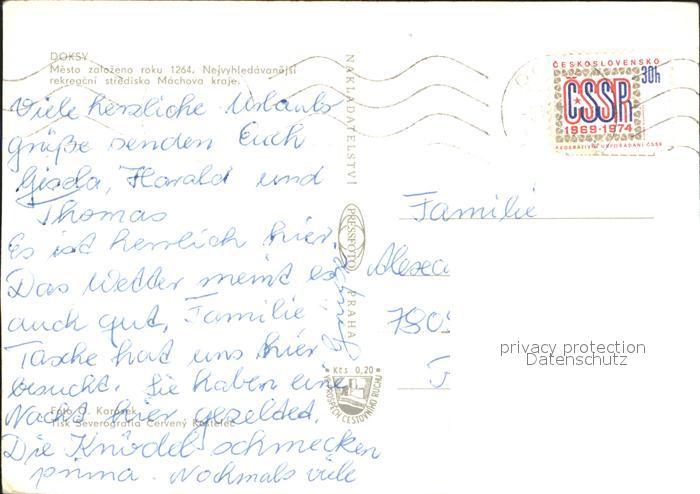 DOKSY
Město založeno roku 1264. Nejvyhledávanější
rekreační středisko Máchova kraje.
Viele herzliche Urlaubs
grüße senden Euch
Gisela, Harald und
Thomas
Es ist herrlich hier.
Das Wetter meint es
auch gut. Familie
Tasche hat uns hier
besucht. Sie haben eine
Nacht hier gezeltet.
Die Knödel schmecken
prima. Nochmals viele
Grüße
Foto O. Karásek
Tisk Severografia Červený Kostelec
NAKLADATELSTVÍ
PRESSFOTO
PRAHA
Kčs 0,20
VE PROSPĚCH CESTOVNÍHO RUCHU
ČESKOSLOVENSKO
30h
ČSSR
1969-1974
FEDERATIVNÍ USPOŘÁDÁNÍ ČSSR
Familie
780
privacy protection
Datenschutz